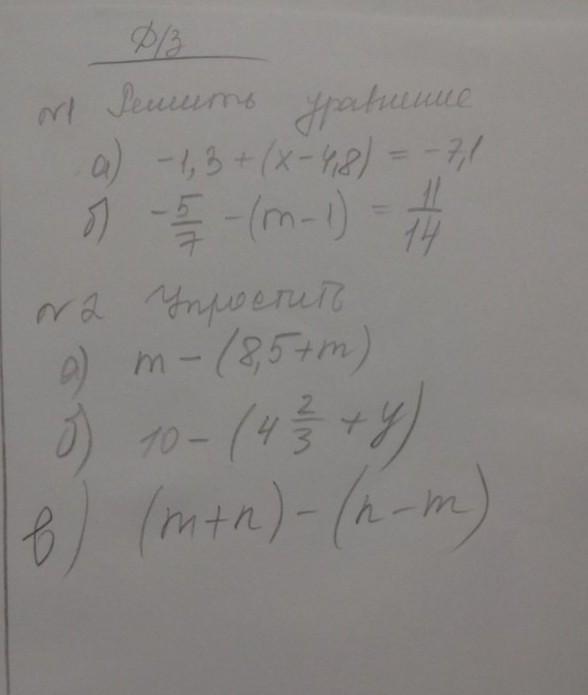 Д/З
№1 Решить уравнение
а) -1,3 + (x - 4,8) = -7,1
б) -5/7 - (m - 1) = 11/14
№2 Упростить
а) m - (8,5 + m)
б) 10 - (4 2/3 + y)
в) (m + n) - (n - m)